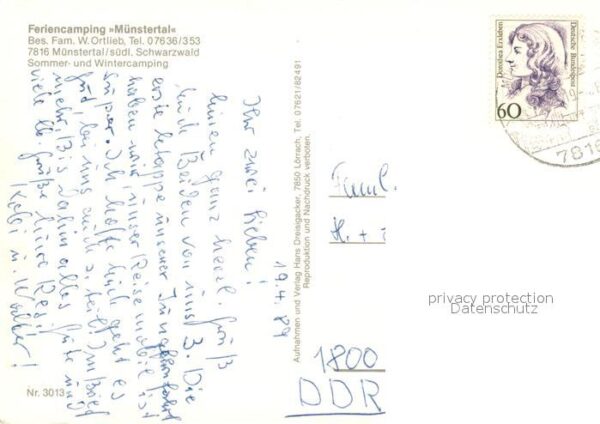 Feriencamping »Münstertal«
Bes. Fam. W. Ortlieb, Tel. 07636/353
7816 Münstertal/südl. Schwarzwald
Sommer- und Wintercamping
19.4.89
Ihr zwei Lieben!
Einen ganz herzl. Gruß
Euch Beiden von uns 3. Die
erste Etappe unserer Jungfernfahrt
haben wir, unser Reisemobil ist
super. Ich hoffe Euch geht es
gut, bei uns auch z. teil! Im Brief
mehr. Bis dahin alles Gute und
viele lb. Grüße Eure Resi
u. Walter!
Nr. 3013
Aufnahmen und Verlag Hans Dreisigacker, 7850 Lörrach, Tel. 07621/82491
Reproduktion und Nachdruck verboten.
Dorothea Erxleben
Deutsche Bundespost
60
7816
Faml.
H. + i
1800
DDR
privacy protection
Datenschutz